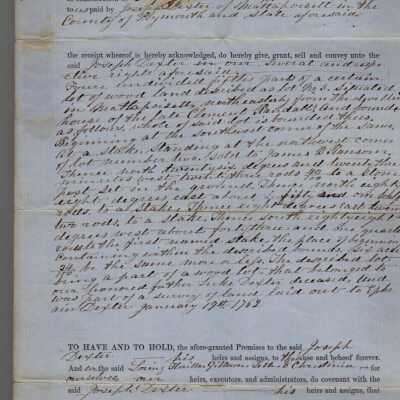 to us paid by Joseph Dexter of Mattapoisett in the
County of Plymouth and State aforesaid
the receipt whereof is hereby acknowledged, do hereby give, grant, sell and convey unto the
said Joseph Dexter in our several and respe
ctive rights aforesaid
part of a certain
lot of wood land described as lot No 3. Situated
in Mattapoisett, northeasterly from the dwelling
house of the late and bounded
as follows, whole of said lot is bounded thus,
Beginning at the Southwest corner of the same,
at a stake Standing at the northwest corner
of lot number two, Sold to James
Thence north twenty six degrees and twenty five
minutes west thirty three rods to a stone
post Set in the ground, Thence north eighty
eight degrees east about fifty and one half
rods, to a Stake, Thence eight degrees east thirty
two rods, to a stake, Thence south eighty eight
degrees west about forty three and one quarter
rods to the first named stake, the place of beginning
containing within the described bounds
be the same more or less. The described lot
being a part of a wood lot that belonged to
our honored father Luke Dexter deceased, and
was part of a survey of land laid out to Eph
aim Dexter January 19th 1762
TO HAVE AND TO HOLD, the afore-granted Premises to the said Joseph
Dexter his heirs and assigns, to the use and behoof forever.
And the said for
ourselves our heirs, executors, and administrators, do covenant with the
said Joseph Dexter his heirs and assigns, that